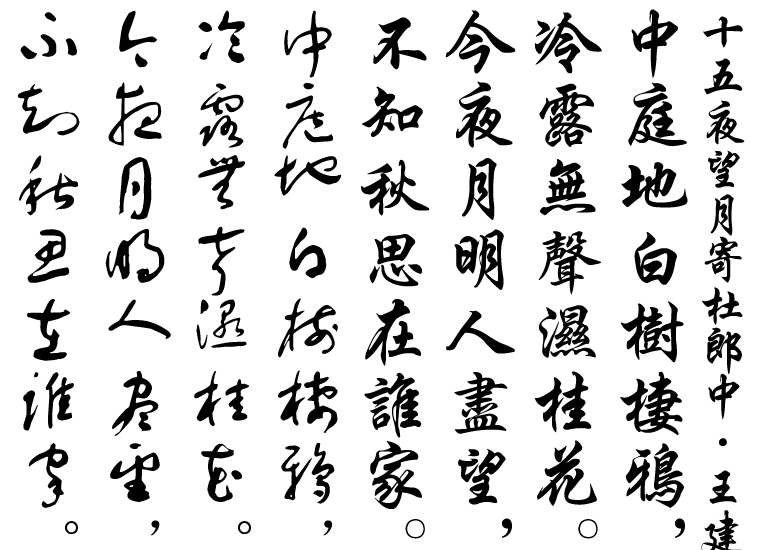 十五夜望月寄杜郎中・王建
中庭地白樹棲鴉，
冷露無聲濕桂花。
今夜月明人盡望，
不知秋思在誰家。
中庭地白樹棲鴉，
冷露無聲濕桂花。
今夜月明人盡望，
不知秋思在誰家。